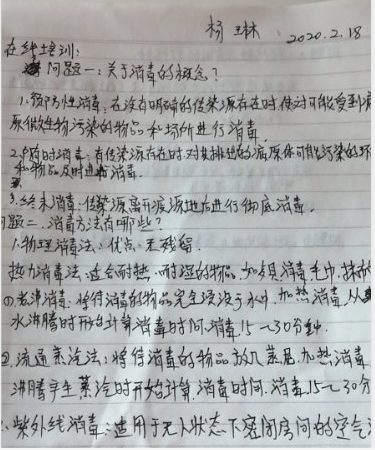 杨琳 2020.2.18
在线培训:
问题一:关于消毒的概念?
1.预防性消毒:在没有明确的传染源存在时,对可能受到病
原微生物污染的物品和场所进行消毒.
2.随时消毒:有传染源存在时,对其排出的病原体可能污染的环
和物品及时进行消毒.
3.终末消毒:传染源离开疫源地后进行彻底消毒.
问题二.消毒方法有哪些?
1.物理消毒法:优点:无残留.
热力消毒法:适合耐热.耐湿的物品,如餐具消毒,毛巾,抹布
①煮沸消毒:将待消毒的物品完全浸没于水中.加热消毒,从
水沸腾时开始计算消毒时间.消毒15~30分钟.
2.流通蒸汽法:将待消毒的物品放入蒸屉,加热消毒
沸腾产生蒸汽时开始计算,消毒时间.消毒15~30分
紫外线消毒:适用于无人状态下密闭房间的空气